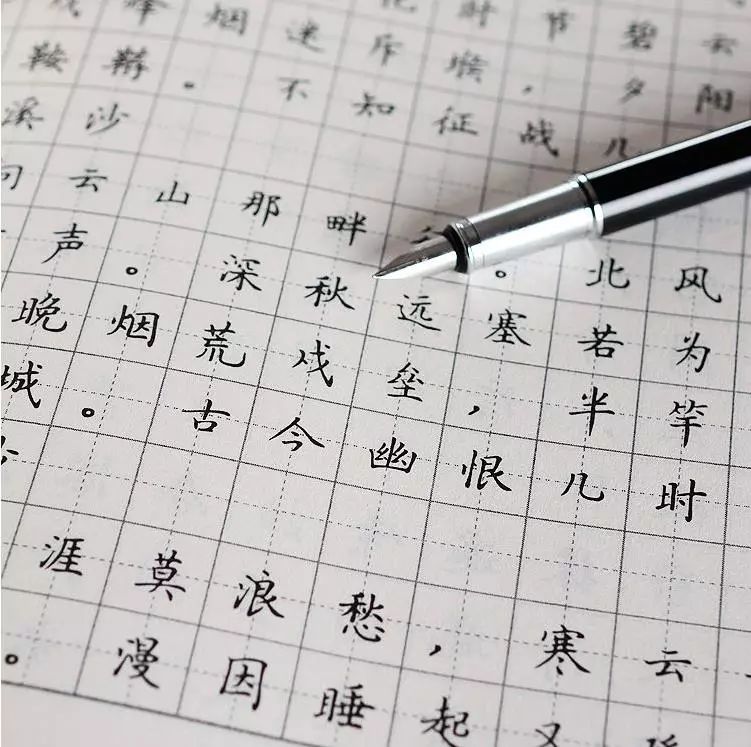 时节碧云
戍烽烟迷斥堠，夕阳
鞍鞯。不知征战几
溪沙
云山那畔。北风
声。深秋远塞若为
晚烟荒戍垒，半竿
城。古今幽恨几时
涯莫浪愁，寒云
。漫因睡起又